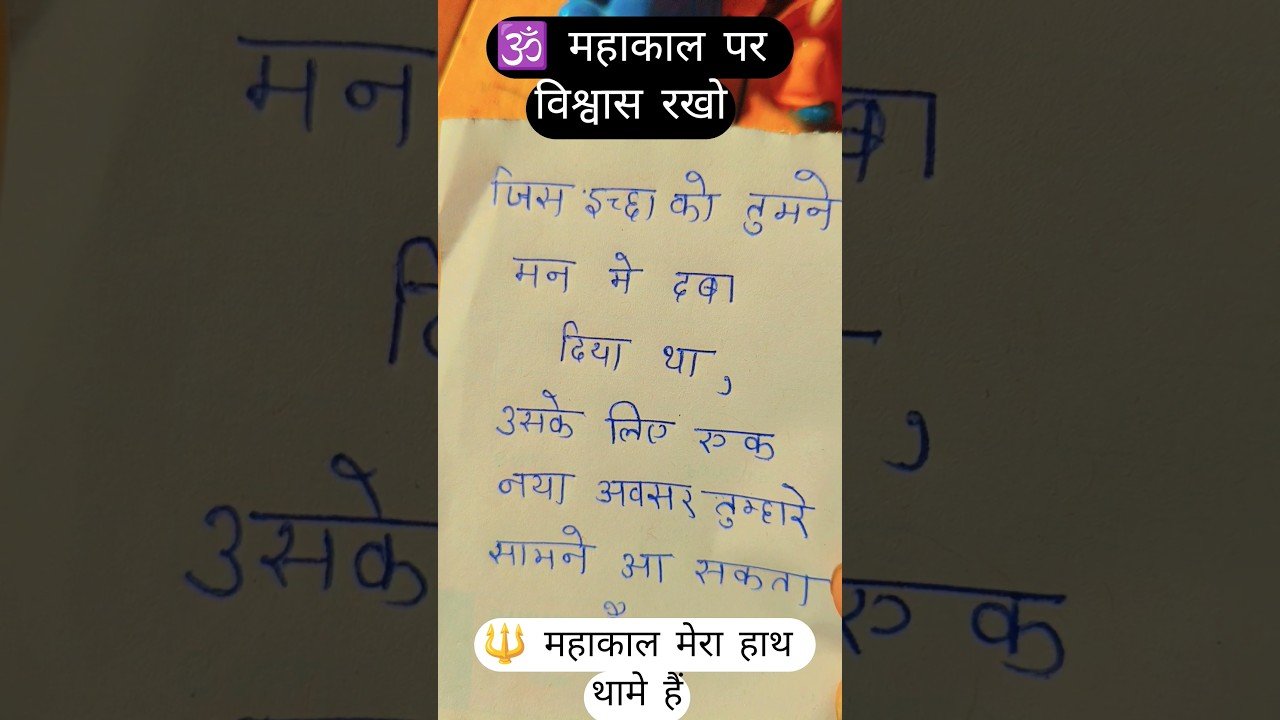 🕉 महाकाल पर
विश्वास रखो
जिस इच्छा को तुमने
मन मे दबा
दिया था,
उसके लिए रुक
नया अवसर तुम्हारे
सामने आ सकता
🔱 महाकाल मेरा हाथ
थामे हैं